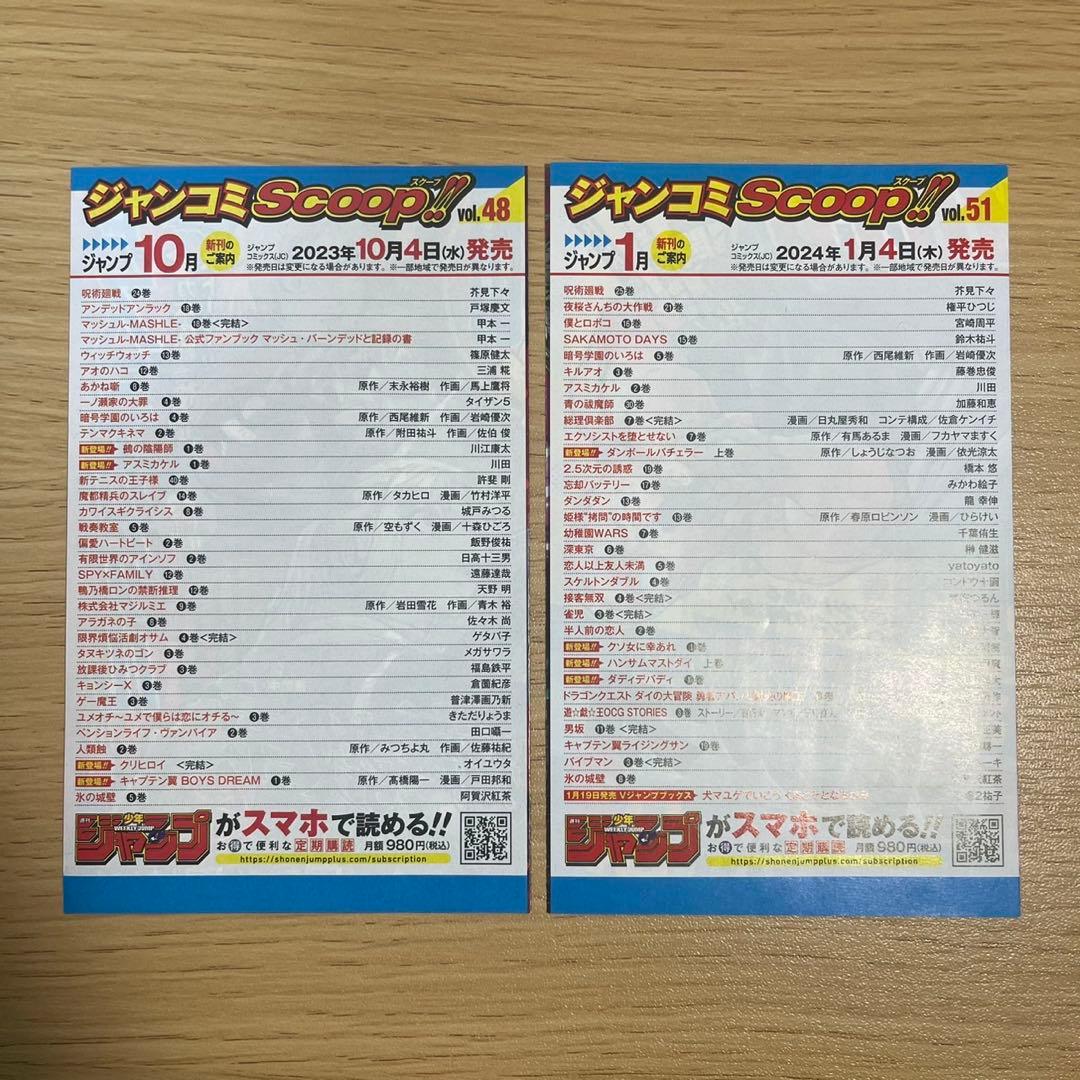 ジャンコミScoop!!! スクープ vol.48
ジャンプ 10月 新刊のご案内 ジャンプコミックス(JC) 2023年10月4日(水)発売
※発売日は変更になる場合があります。※一部地域で発売日が異なります。
呪術廻戦 24巻 芥見下々
アンデッドアンラック 18巻 戸塚慶文
マッシュル-MASHLE- 18巻<完結> 甲本 一
マッシュル-MASHLE- 公式ファンブック マッシュ・バーンデッドと記録の書 甲本 一
ウィッチウォッチ 13巻 篠原健太
アオのハコ 12巻 三浦 糀
あかね噺 8巻 原作/末永裕樹 作画/馬上鷹将
一ノ瀬家の大罪 4巻 タイザン5
暗号学園のいろは 4巻 原作/西尾維新 作画/岩崎優次
テンマクキネマ 2巻 原作/附田祐斗 作画/佐伯 俊
新登場!! 鵺の陰陽師 1巻 川江康太
新登場!! アスミカケル 1巻 川田
新テニスの王子様 40巻 許斐 剛
魔都精兵のスレイブ 14巻 原作/タカヒロ 漫画/竹村洋平
カワイスギクライシス 8巻 城戸みつる
戦奏教室 5巻 原作/空もずく 漫画/十森ひごろ
偏愛ハートビート 2巻 飯野俊祐
有限世界のアインソフ 2巻 日高十三男
SPY×FAMILY 12巻 遠藤達哉
鴨乃橋ロンの禁断推理 12巻 天野 明
株式会社マジルミエ 9巻 原作/岩田雪花 作画/青木 裕
アラガネの子 6巻 佐々木 尚
限界煩悩活劇オサム 4巻<完結> ゲタバ子
タヌキツネのゴン 3巻 メガサワラ
放課後ひみつクラブ 3巻 福島鉄平
キョンシーX 3巻 倉薗紀彦
ゲー魔王 3巻 普津澤画乃新
ユメオチ〜ユメで僕らは恋にオチる〜 3巻 きただりょうま
ペンションライフ・ヴァンパイア 2巻 田口囁一
人類蝕 2巻 原作/みつちよ丸 作画/佐藤祐紀
新登場!! クリヒロイ <完結> オイユウタ
新登場!! キャプテン翼 BOYS DREAM 1巻 原作/高橋陽一 漫画/戸田邦和
氷の城壁 5巻 阿賀沢紅茶
週刊少年ジャンプ WEEKLY JUMP がスマホで読める!!
お得で便利な定期購読 月額980円(税込)
https://shonenjumpplus.com/subscription
ジャンコミScoop!!! スクープ vol.51
ジャンプ 1月 新刊のご案内 ジャンプコミックス(JC) 2024年1月4日(木)発売
※発売日は変更になる場合があります。※一部地域で発売日が異なります。
呪術廻戦 25巻 芥見下々
夜桜さんちの大作戦 21巻 権平ひつじ
僕とロボコ 16巻 宮崎周平
SAKAMOTO DAYS 15巻 鈴木祐斗
暗号学園のいろは 5巻 原作/西尾維新 作画/岩崎優次
キルアオ 3巻 藤巻忠俊
アスミカケル 2巻 川田
青の祓魔師 30巻 加藤和恵
総理倶楽部 7巻<完結> 漫画/日丸屋秀和 コンテ構成/佐倉ケンイチ
エクソシストを堕とせない 7巻 原作/有馬あるま 漫画/フカヤマますく
新登場!! ダンボールバチェラー 上巻 原作/しょうじなつお 漫画/依光涼太
2.5次元の誘惑 19巻 橋本 悠
忘却バッテリー 17巻 みかわ絵子
ダンダダン 13巻 龍 幸伸
姫様"拷問"の時間です 13巻 原作/春原ロビンソン 漫画/ひらけい
幼稚園WARS 7巻 千葉侑生
深東京 6巻 榊 健滋
恋人以上友人未満 5巻 yatoyato
スケルトンダブル 4巻 コンドウ十画
接客無双 4巻<完結>
雀児 3巻<完結>
半人前の恋人 2巻
新登場!! クソ女に幸あれ 1巻
新登場!! ハンサムマストダイ 上巻
新登場!! ダディデバディ 1巻
ドラゴンクエスト ダイの大冒険 勇者アバン
遊☆戯☆王OCG STORIES ストーリー/
男坂 11巻<完結>
キャプテン翼ライジングサン 19巻
バイブマン 3巻<完結>
氷の城壁 6巻 紅茶
1月19日発売 Vジャンプブックス 犬マユゲでいこう
週刊少年ジャンプ WEEKLY JUMP がスマホで読める!!
お得で便利な定期購読 月額980円(税込)
https://shonenjumpplus.com/subscription